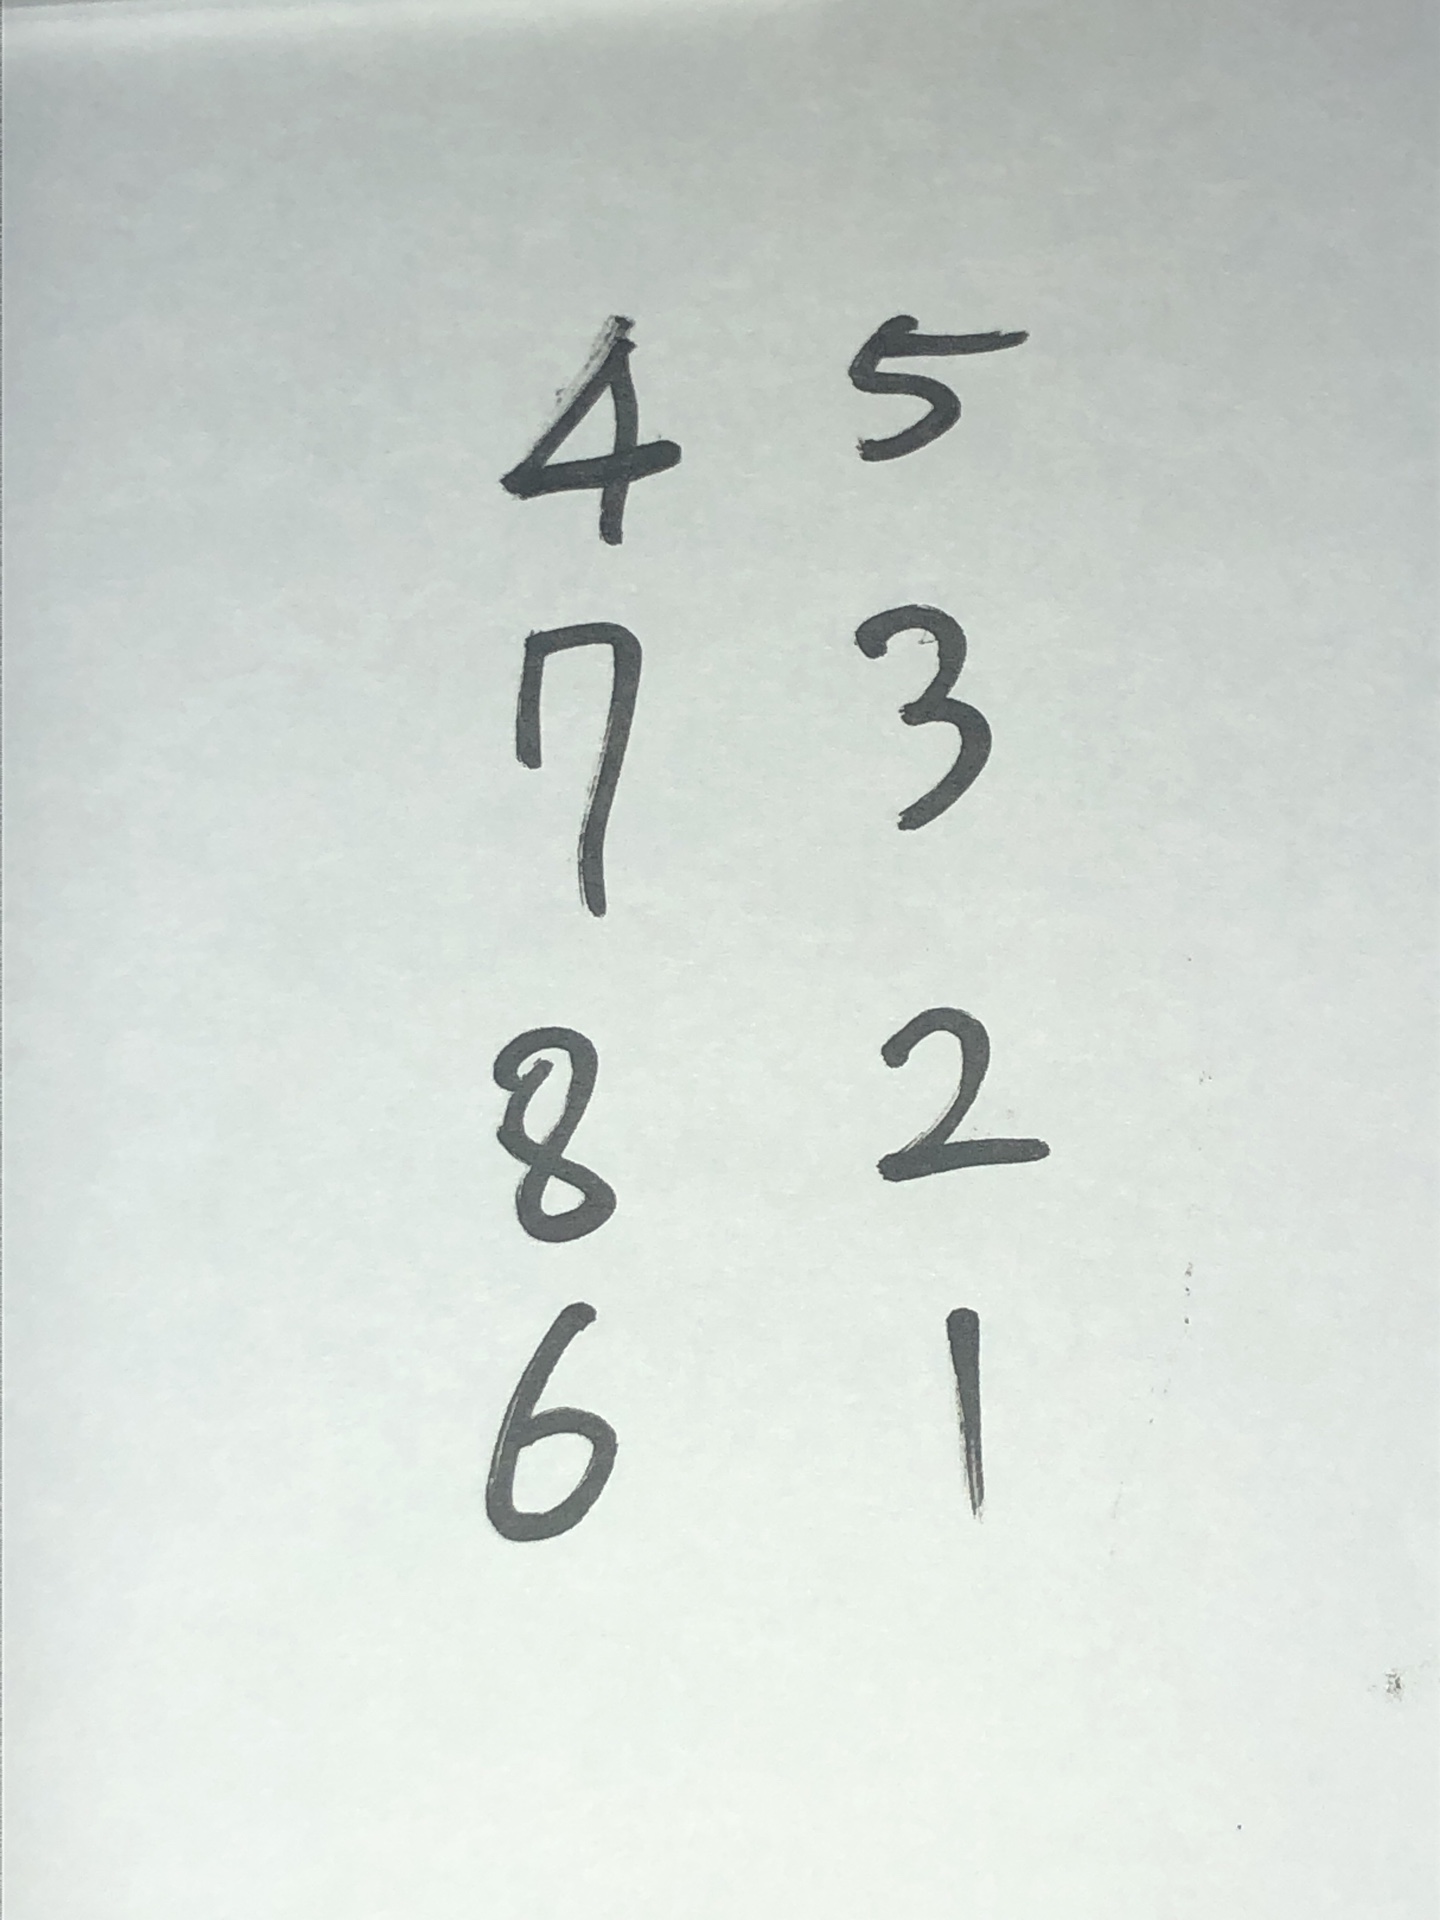 4 5
7 3
8 2
6 1